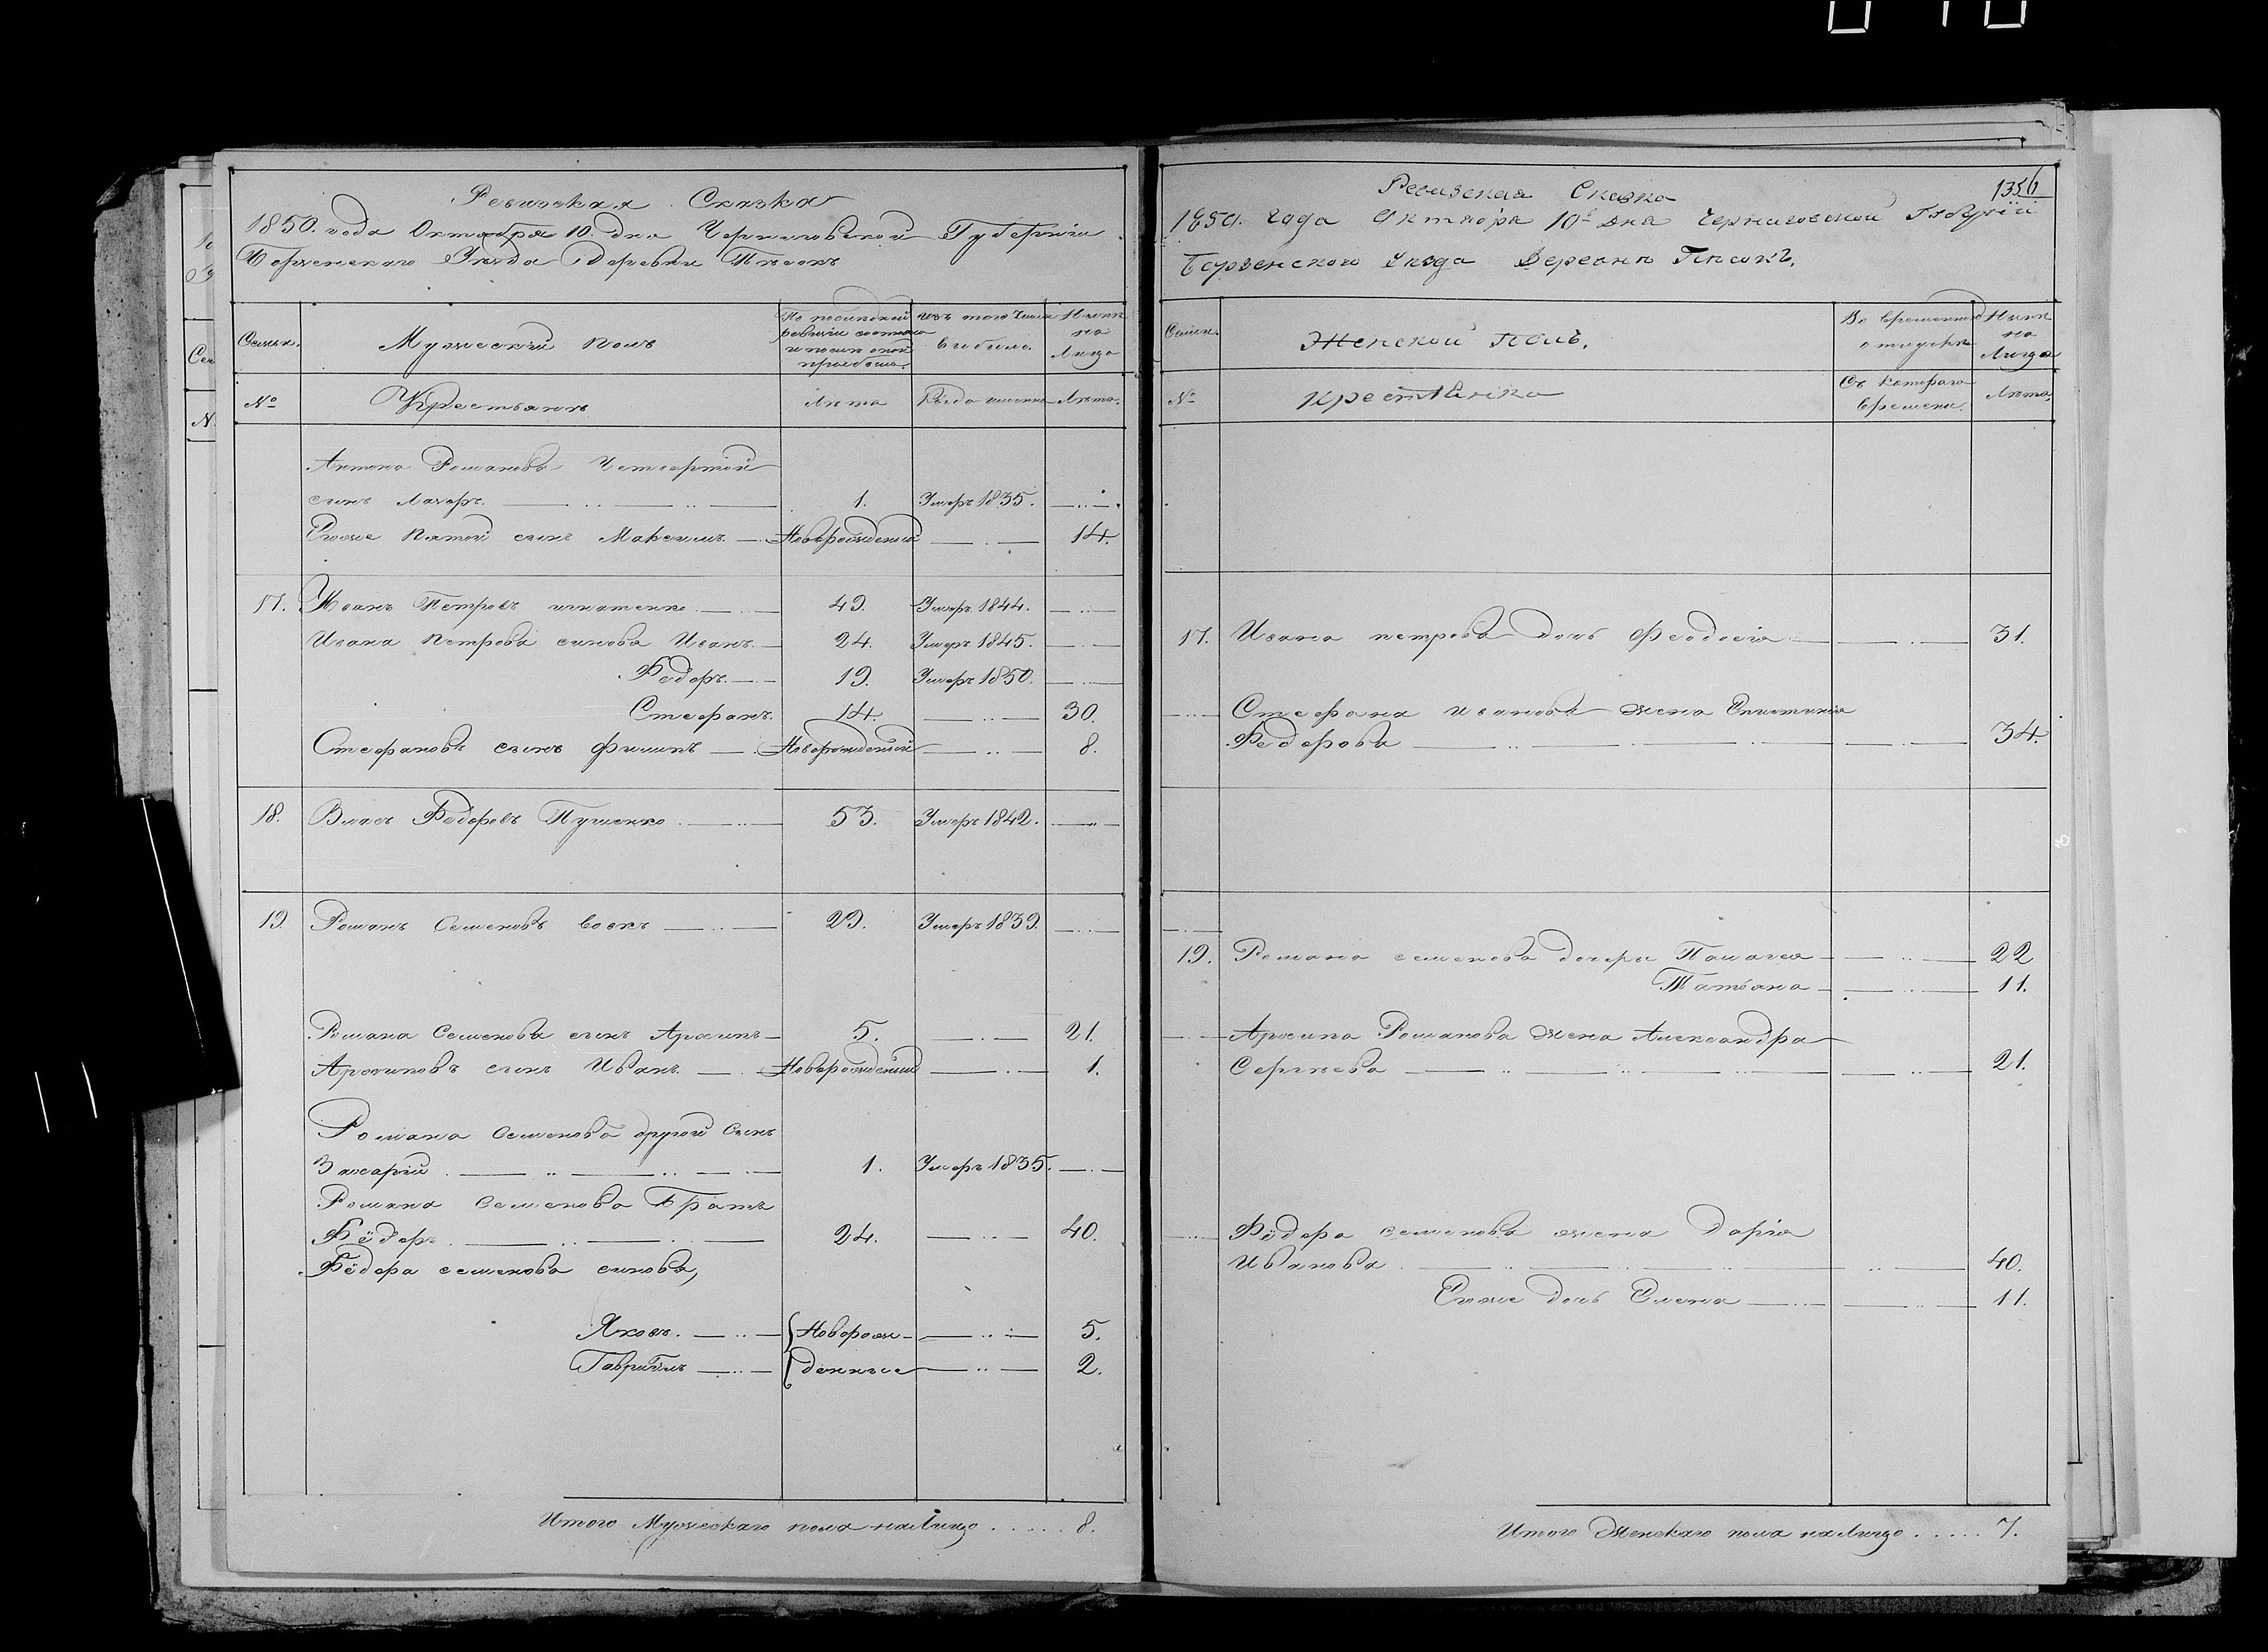 Ревизская Сказка
1850. года Октября 10. дня Черниговской Губерніи
Борзенскаго Уезда Деревни Пѣсокъ
Семьи.
Мужескій полъ
По послѣдней ревизіи состояло и после оной прибыло.
Изъ того числа выбыло.
Нынѣ на Лицо
№
Крестьянъ
Лѣта
Когда именно
Лѣта.
Антона Романова Четвертой
сынъ Лазорь. 1. Умеръ 1835.
Егоже Пятой сынъ Максимъ. Новорожденный 14.
17. Иванъ Петровъ игнатенко. 49. Умеръ 1844.
Ивана Петрова синова Иванъ. 24. Умеръ 1845.
Фёдоръ. 19. Умеръ 1850.
Стефанъ. 14. 30.
Стефановъ сынъ Филипъ Новорожденный 8.
18. Власъ Федоровъ Пушенко 53. Умеръ 1842.
19. Романъ Семеновъ 29. Умеръ 1839.
Романа Семенова сынъ Архипъ 5. 21.
Архиповъ сынъ Иванъ. Новорожденный 1.
Романа Семенова другой Сынъ
Захарій 1. Умеръ 1835.
Романа Семенова Братъ
Фёдоръ 24. 40.
Фёдора семенова синова,
Яковъ. Новорож- 5.
Гавріилъ денные 2.
Итого Мужескаго пола наЛицо ..... 8.
1356
Ревизская Сказка
1850. Года Октября 10ᵉ дня Черниговской Губерніи
Борзенского Уезда Деревнѣ Пѣсокъ.
Семьи.
Женской Полъ.
Во временной отлучкѣ
Нынѣ на Лицо
№
Крестьянка
Съ котораго времени.
Лѣта.
17. Ивана петрова дочь Феодосія 31.
Стефана иванова жена
Федорова 34.
19. Романа семенова дочери Палагея 22
Татьяна 11.
Архипа Романова жена Александра
Сергѣева 21.
Фёдора семенова жена Дарія
Иванова 40.
Егоже дочь Елена 11.
Итого Женскаго пола наЛицо ..... 7.